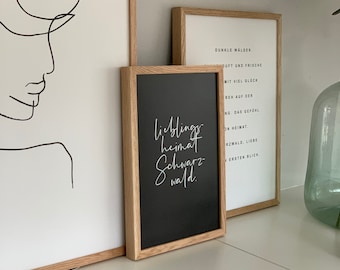 Lieblings-
heimat
Schwarz-
wald.
DUNKLE WÄLDER
UFT UND FRISCHE
MIT VIEL GLÜCK
AUF DER
DAS GEFÜHL
HEIMAT.
LIEBE
ERSTEN BLICK.